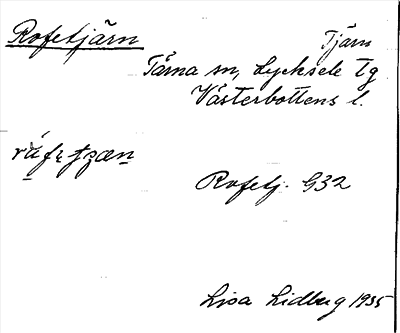 Rofetjärn
Tjärn
Tärna sn, Lycksele tg
Västerbottens l.
Rofetj. G32
Lisa Lidberg 1935